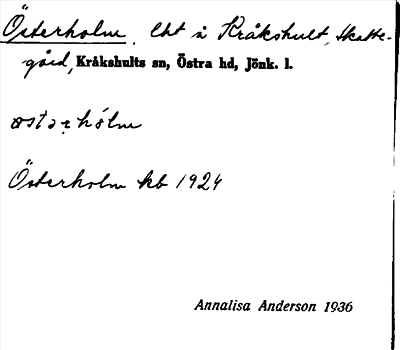 Österholm, lht å Kråkshult, skatte-
gård, Kråkshults sn, Östra hd, Jönk. l.
östərhólm
Österholm kb 1924
Annalisa Anderson 1936